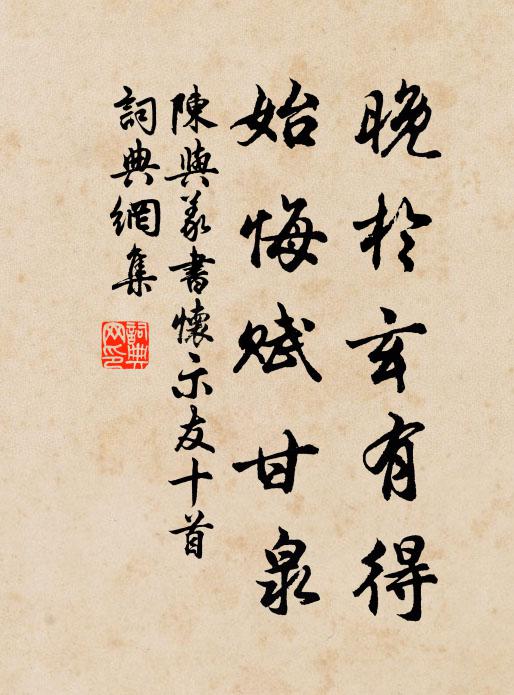 晚於玄有得
始悔賦甘泉
陳與義書懷示友十首
詞典網集
詞典
网印